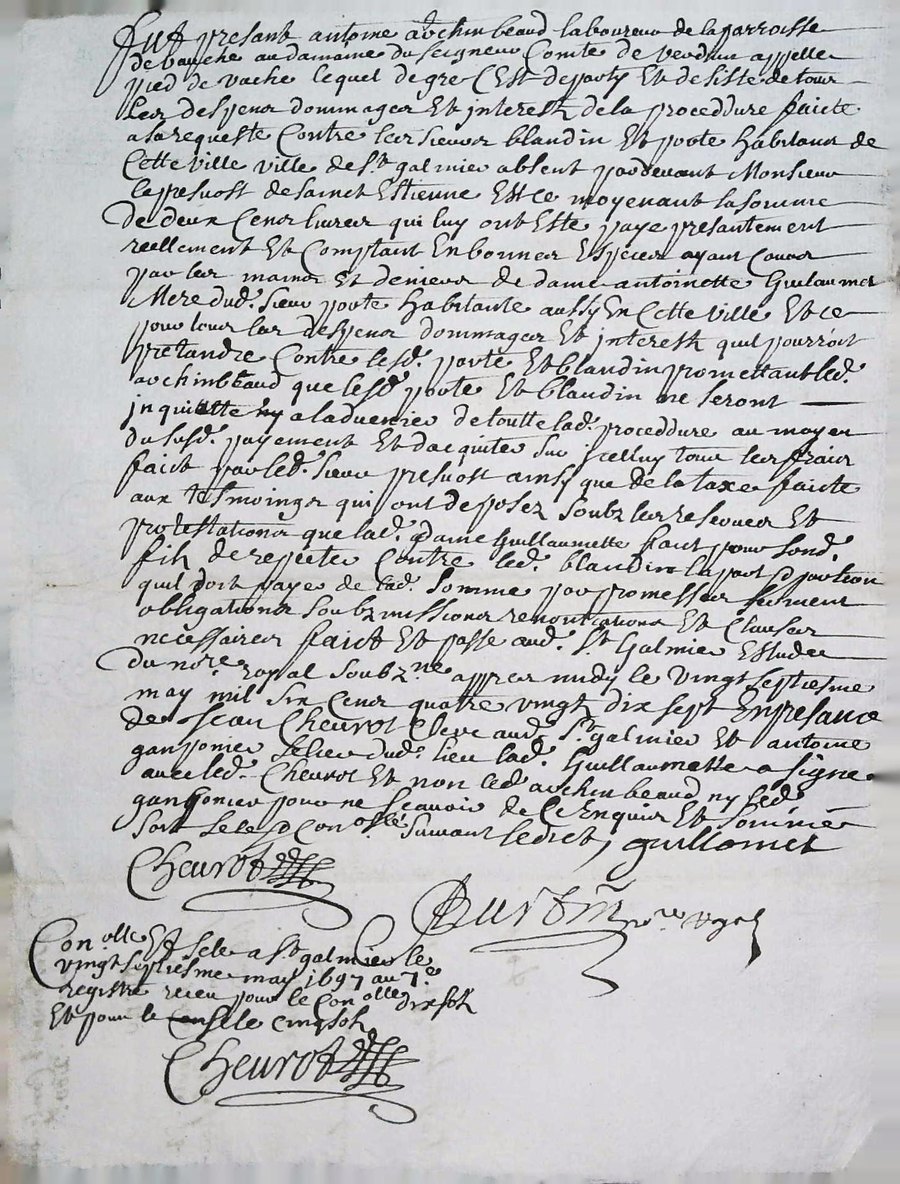 Fut presant antoine archinbeaud laboureur de la parroisse
de bouche au damaine du seigneur Comte de verdun appelle
pied de vache lequel de gre C'est departy Et desiste de tous
Les despens dommages Et interesth de la procedure faicte
a sa requeste Contre les sieurs blandin Et porte habitans de
Cette ville ville de St galmier absent pardevant Monsieur
le prevost de sainct Estienne Est ce moyenant la somme
de deux Cens livres qui luy ont Este paye presantement
reellement Et Comptant En bonnes Especes ayant Cours
par les mains Et deniers de dame antoinette Guilaumet
Mere dud. sieur porte habitante aussy En Cette ville Et ce
pour tous les despens dommages Et interesth quil pourroit
pretandre Contre lesd. porte Et blandin promettant led.
archinbeaud que lesd. porte Et blandin ne seront
inquiette ny a ladvenir de toutte lad. procedure au moyen
du susd. payement Et dacquiter sur icelluy tous les frais
faict par led. sieur prevost ainsy que de la taxe faicte
aux tesmoings qui ont deposez soubz les reserves Et
protestations que lad. dame Guillaumette faict pour sond.
fils de repeter Contre led. blandin la part portion
quil doit paye de lad. somme par promesses serment
obligations soubzmissions renontiations Et Clauses
necessaires faict Et passe aud. St Galmier Estude
du nore. royal soubzne. appres midy le vingt septiesme
may mil six Cens quatre vingt dix sept En presance
de Jean Cheurot Clerc aud. St galmier Et antoine
ganponier sellier dud. lieu lad. Guillaumette a signe
avec led. Cheurot Et non led. archinbeaud ny led.
ganponier pour ne scavoir de Ce Enquis Et sommé
sort selé Conollé. suivant ledict, guillomet
Cheurot
nore. royal
Conollé Et selé a St galmier le
vingt septiesme may 1697 au 7e.
registre receu pour le Conolle dix solz
Et pour le selle cinq solz
Cheurot